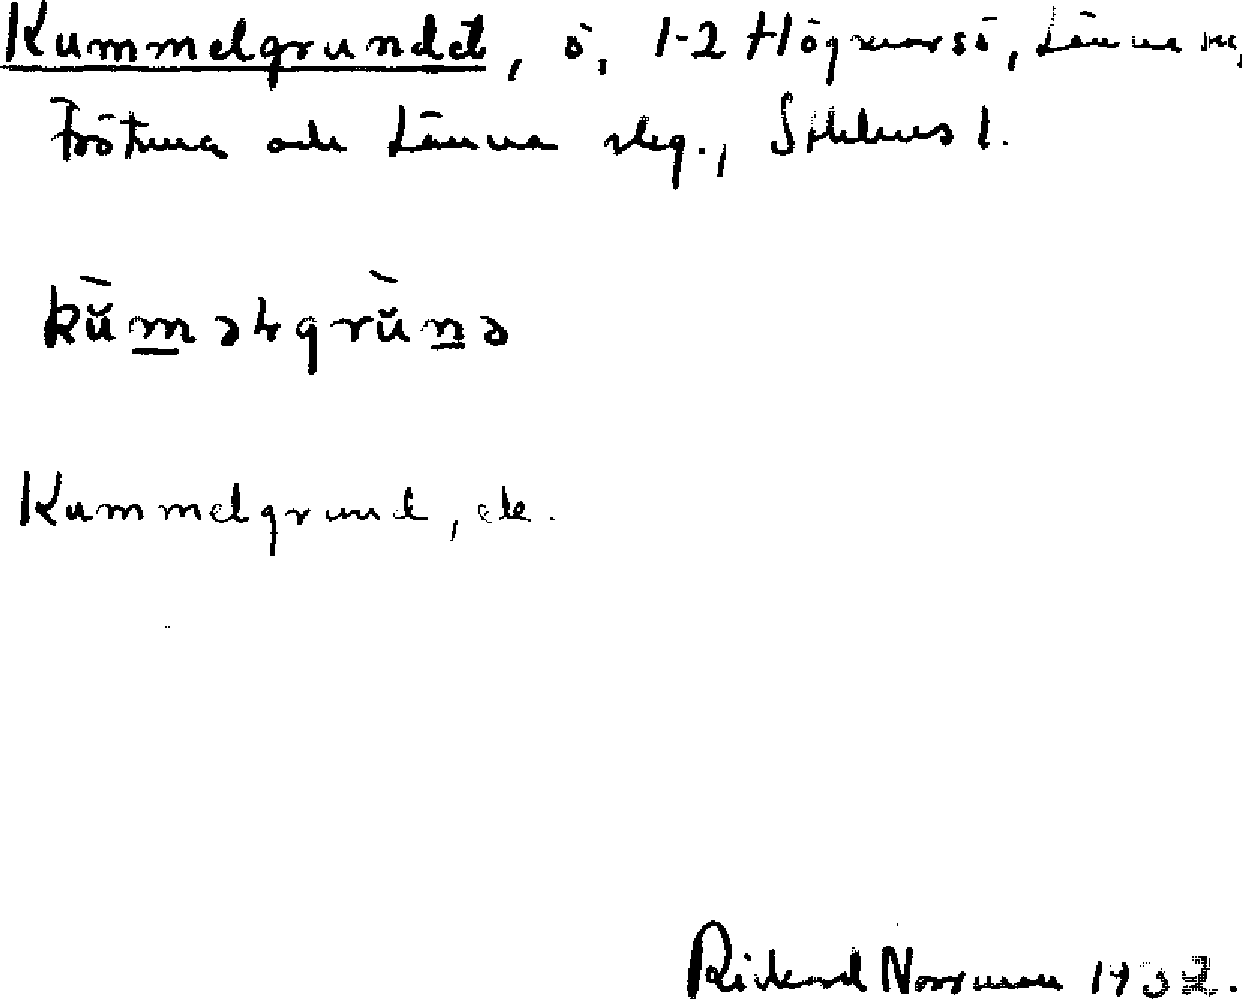 Kummelgrundet, ö, 1-2 Högmarsö, Länna sn,
Frötuna och Länna slg., Sthlms l.
kŭ̀məlgrŭ̀nə
Kummelgrund, ek.
Rickard Norrman 1932.